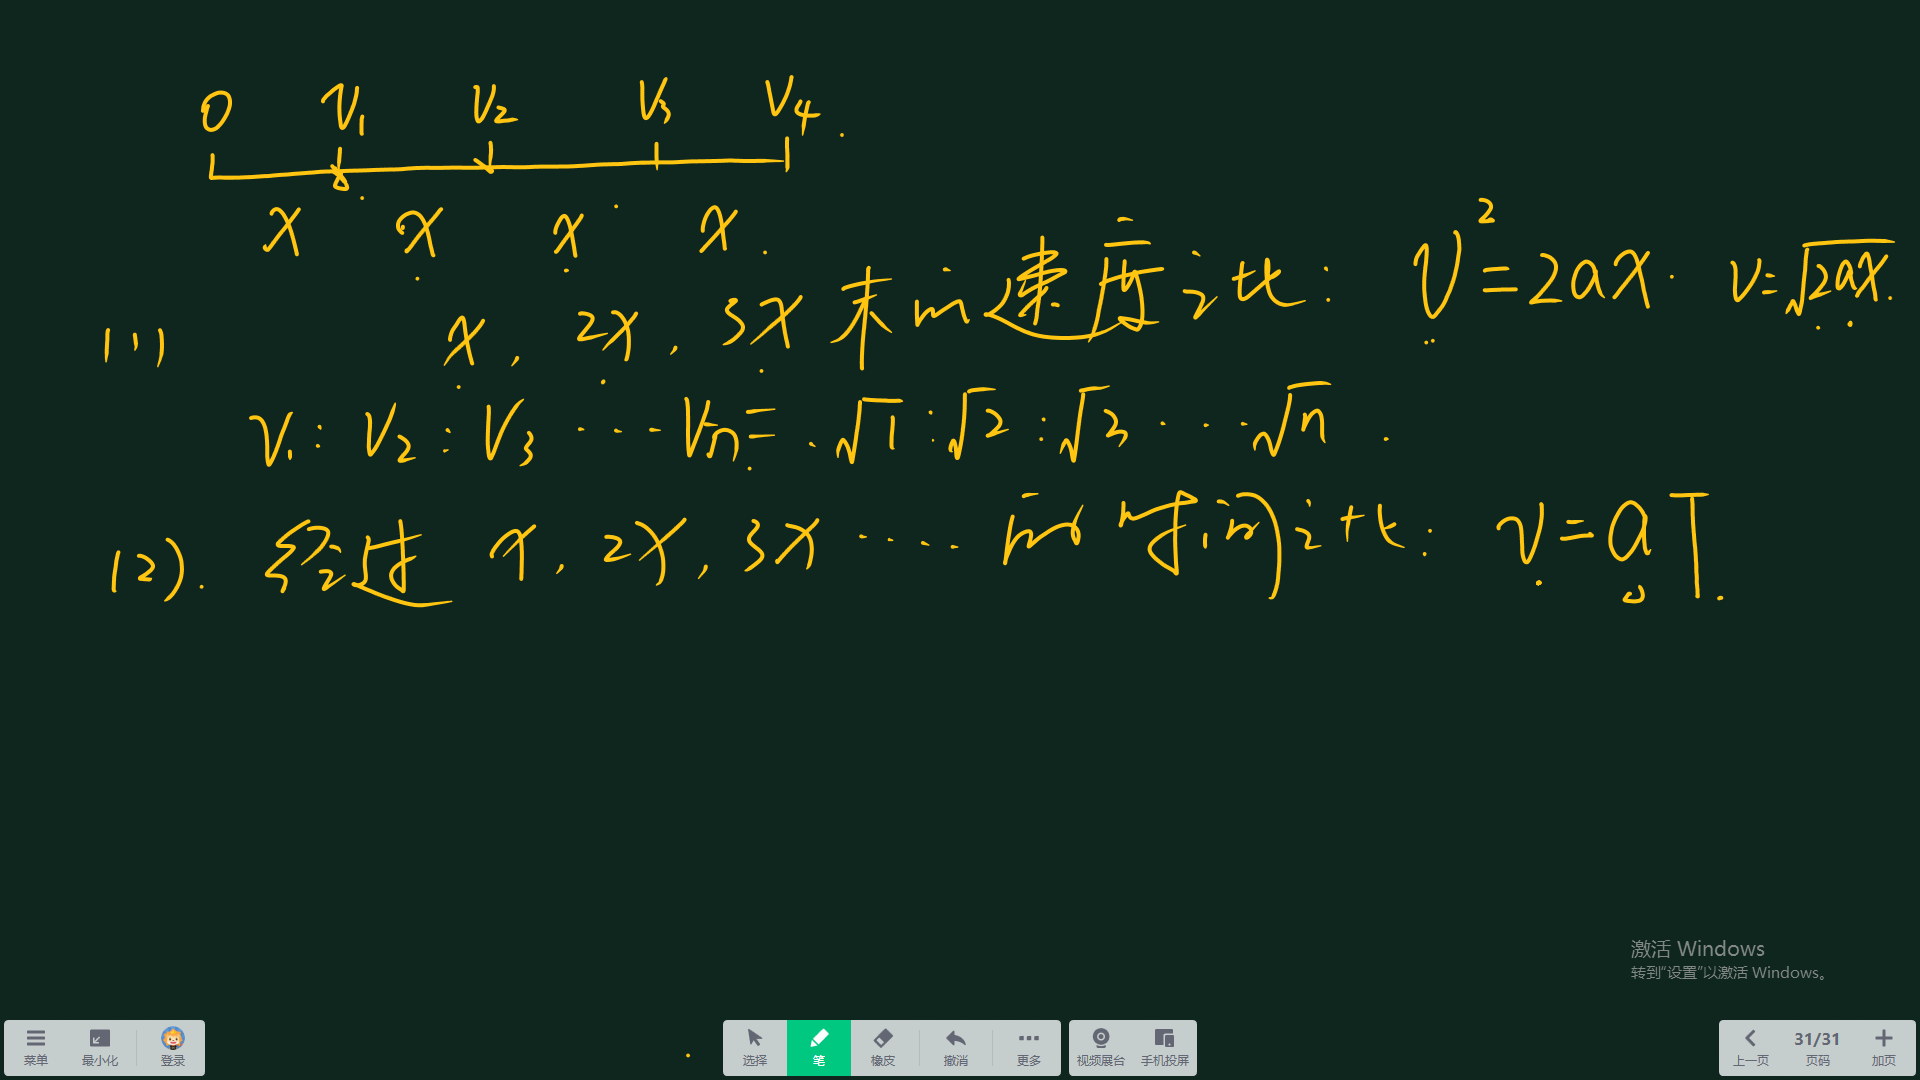 0 V₁ V₂ V₃ V₄.
x x x x.
(1) x, 2x, 3x 末的速度之比: V²=2ax. V=√2ax.
V₁: V₂: V₃ ····Vn=.√1:√2:√3···√n.
(2). 经过 x, 2x, 3x ···· 的时间之比: V=aT.
激活 Windows
转到“设置”以激活 Windows。
菜单 最小化 登录 选择 笔 橡皮 撤消 更多 视频展台 手机投屏 上一页 31/31 页码 加页